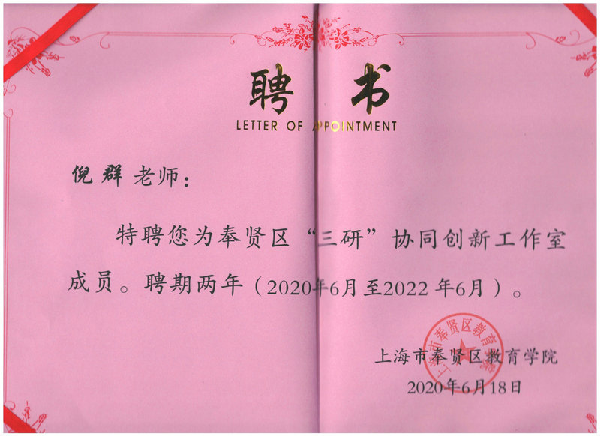 聘 书
LETTER OF APPOINTMENT
倪群老师：
特聘您为奉贤区“三研”协同创新工作室
成员。聘期两年（2020年6月至2022年6月）。
上海市奉贤区教育学院
上海市奉贤区教育学院
2020年6月18日